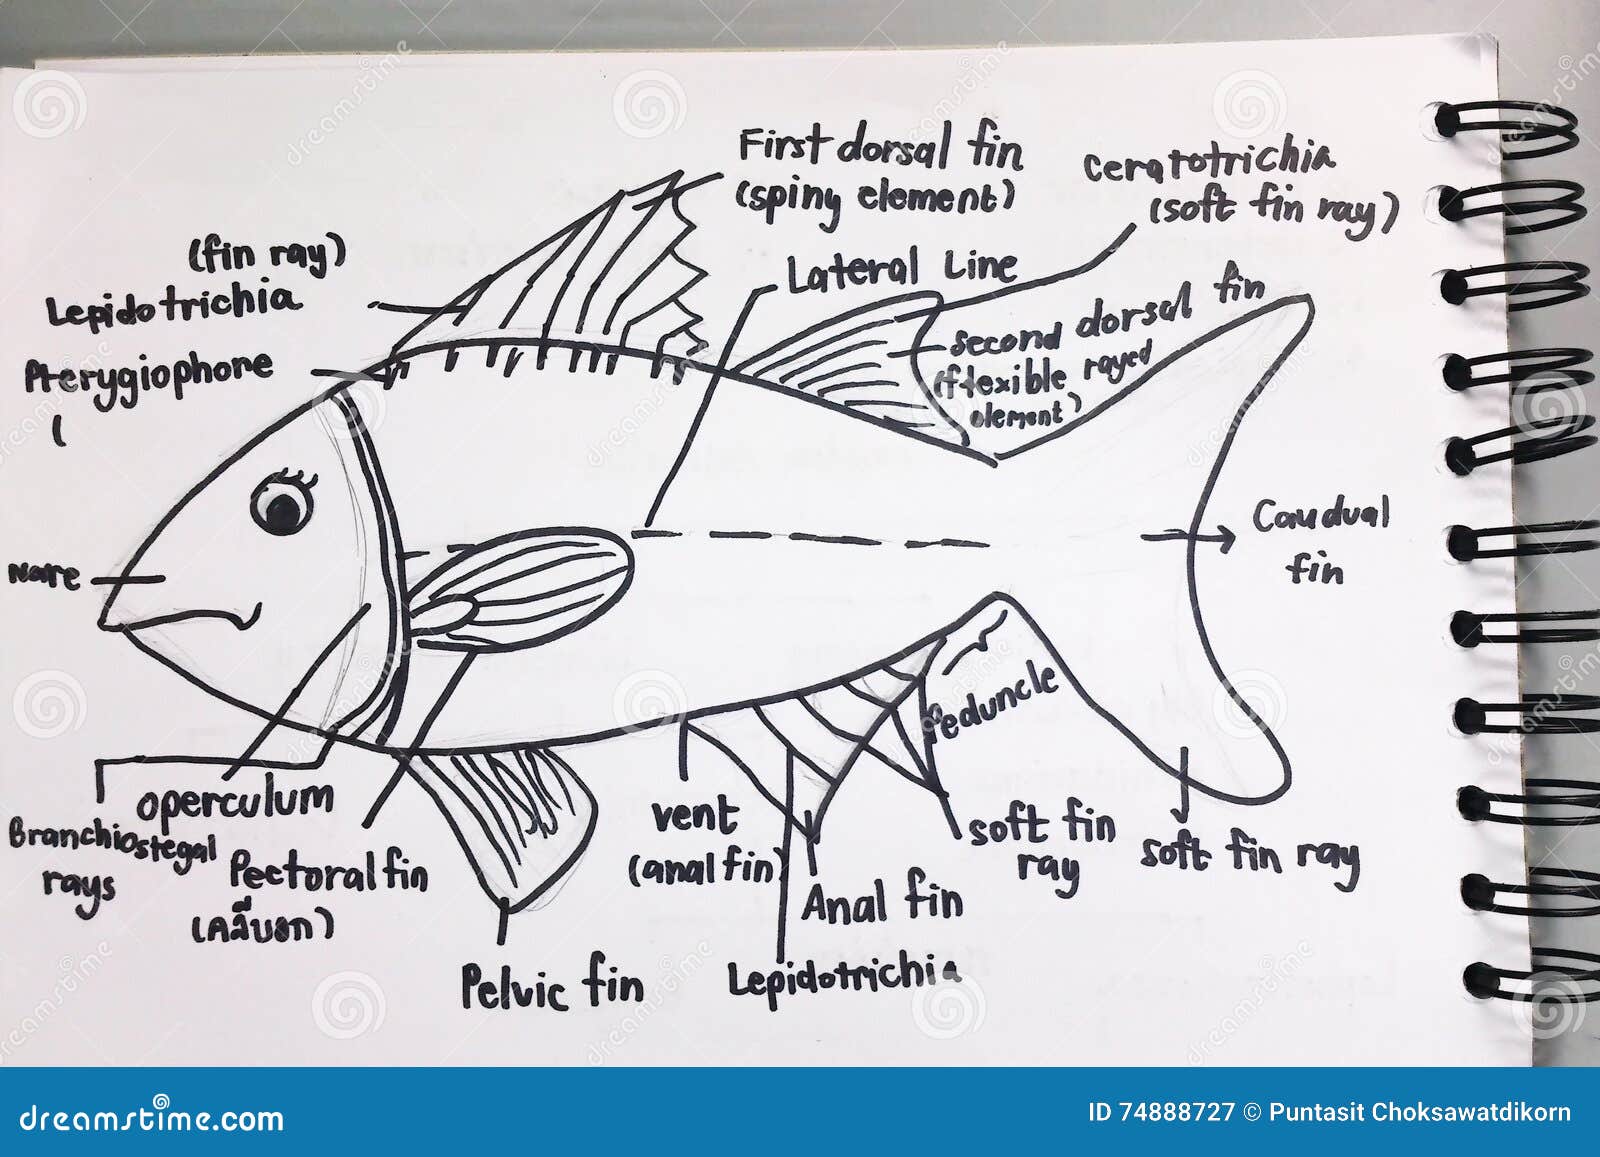 First dorsal fin
(spiny element)
Ceratotrichia
(soft fin ray)
Lateral Line
(fin ray)
Lepidotrichia
Pterygiophone
(
Second dorsal fin
(flexible rayed
element)
Caudual
fin
Nare
Peduncle
operculum
Branchiostegal
rays
Pectoral fin
(คลีบอก)
vent
(anal fin)
soft fin
ray
soft fin ray
Anal fin
Pelvic fin
Lepidotrichia
dreamstime.com
ID 74888727 © Puntasit Choksawatdikorn